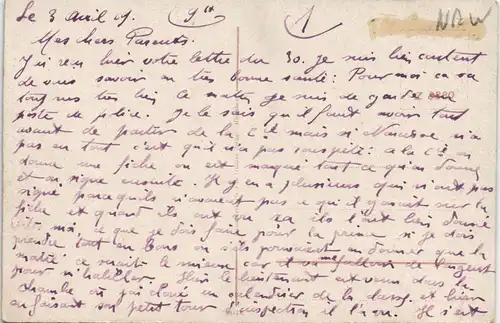 Le 3 Avril 19. 9h 1 NRW
Mes chers Parents.
J'ai reçu hier votre lettre du 30. Je suis bien content
de vous savoir en très bonne santé. Pour moi ça va
toujours très bien. Ce matin je suis de garde au
poste de police. Je le sais qu'il faut avoir tout
avant de partir de la Cie mais si n'a
pas eu tout c'est qu'il n'a pas : à la Cie on
donne une fiche ou est marqué tout ce qu'on donne
et on signe ensuite. Il y en a plusieurs qui n'ont pas
signé parce qu'ils n'avaient pas ce qu'il y avait sur la
fiche et quand ils ont vu ça ils l'ont bien donné
moi, ce que je dois faire pour la prime si je dois
prendre tout en bons ou s'ils pourraient en donner que la
moitié ce serait le mieux car il me fallait de l'argent
pour m'habiller. Hier le lieutenant est venu dans la
chambre où j'ai un calendrier de la classe et hier
en faisant son petit tour d'inspection il l'a vu. Il s'est